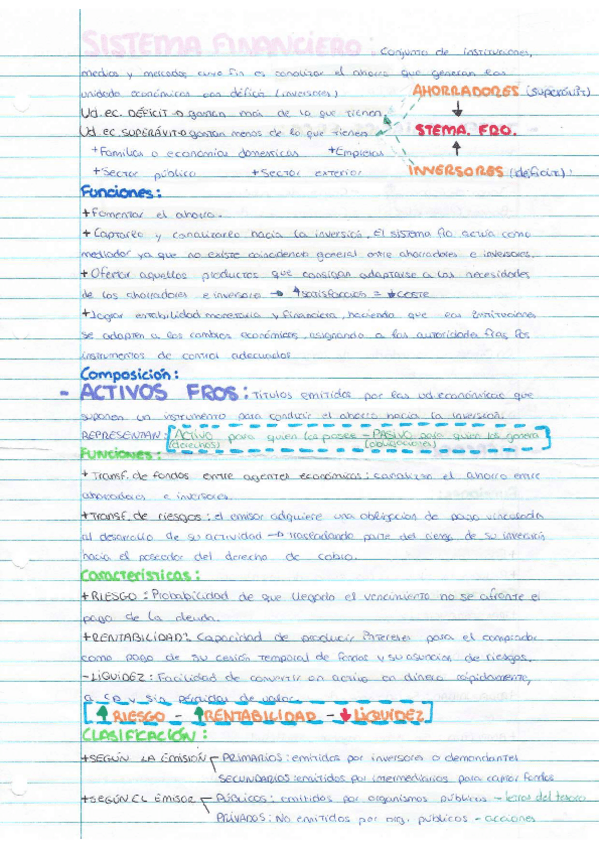 SISTEMA FINANCIERO: Conjunto de instituciones,
medios y mercados cuyo fin es canalizar el ahorro que generan las
unidades económicas con déficit (inversores)
AHORRADORES (superávit)
Ud. ec. DÉFICIT → gastan más de lo que tienen
Ud. ec. SUPERÁVIT → gastan menos de lo que tienen
STEMA. FRO.
+ Familias o economías domésticas + Empresas
+ Sector público + Sector exterior
INVERSORES (déficit)
Funciones:
+ Fomentar el ahorro.
+ Captarlo y canalizarlo hacia la inversión. El sistema fro actúa como
mediador ya que no existe coincidencia general entre ahorradores e inversores.
+ Ofertar aquellos productos que consigan adaptarse a las necesidades
de los ahorradores e inversores → ↑ satisfacción = ↓ coste
+ Lograr estabilidad monetaria y financiera, haciendo que las instituciones
se adapten a los cambios económicos, asignando a las autoridades fras los
instrumentos de control adecuados
Composición:
- ACTIVOS FROS: Títulos emitidos por las ud. económicas que
suponen un instrumento para conducir el ahorro hacia la inversión.
REPRESENTAN: ACTIVO para quien los posee - PASIVO para quien los genera
(derechos) (obligaciones)
Funciones:
+ Transf. de fondos entre agentes económicos: canalizan el ahorro entre
ahorradores e inversores.
+ Transf. de riesgos: el emisor adquiere una obligación de pago vinculada
al desarrollo de su actividad → trasladando parte del riesgo de su inversión
hacia el poseedor del derecho de cobro.
Características:
+ RIESGO: Probabilidad de que llegado el vencimiento no se afronte el
pago de la deuda.
+ RENTABILIDAD: Capacidad de producir intereses para el comprador
como pago de su cesión temporal de fondos y su asunción de riesgos.
- LIQUIDEZ: Facilidad de convertir un activo en dinero rápidamente,
a CP y sin pérdidas de valor.
↑ RIESGO - ↑ RENTABILIDAD - ↓ LIQUIDEZ
CLASIFICACIÓN:
+ SEGÚN LA EMISIÓN PRIMARIOS: emitidos por inversores o demandantes
SECUNDARIOS: emitidos por intermediarios para captar fondos
+ SEGÚN EL EMISOR PÚBLICOS: emitidos por organismos públicos - letras del tesoro
PRIVADOS: NO emitidos por org. públicos - acciones